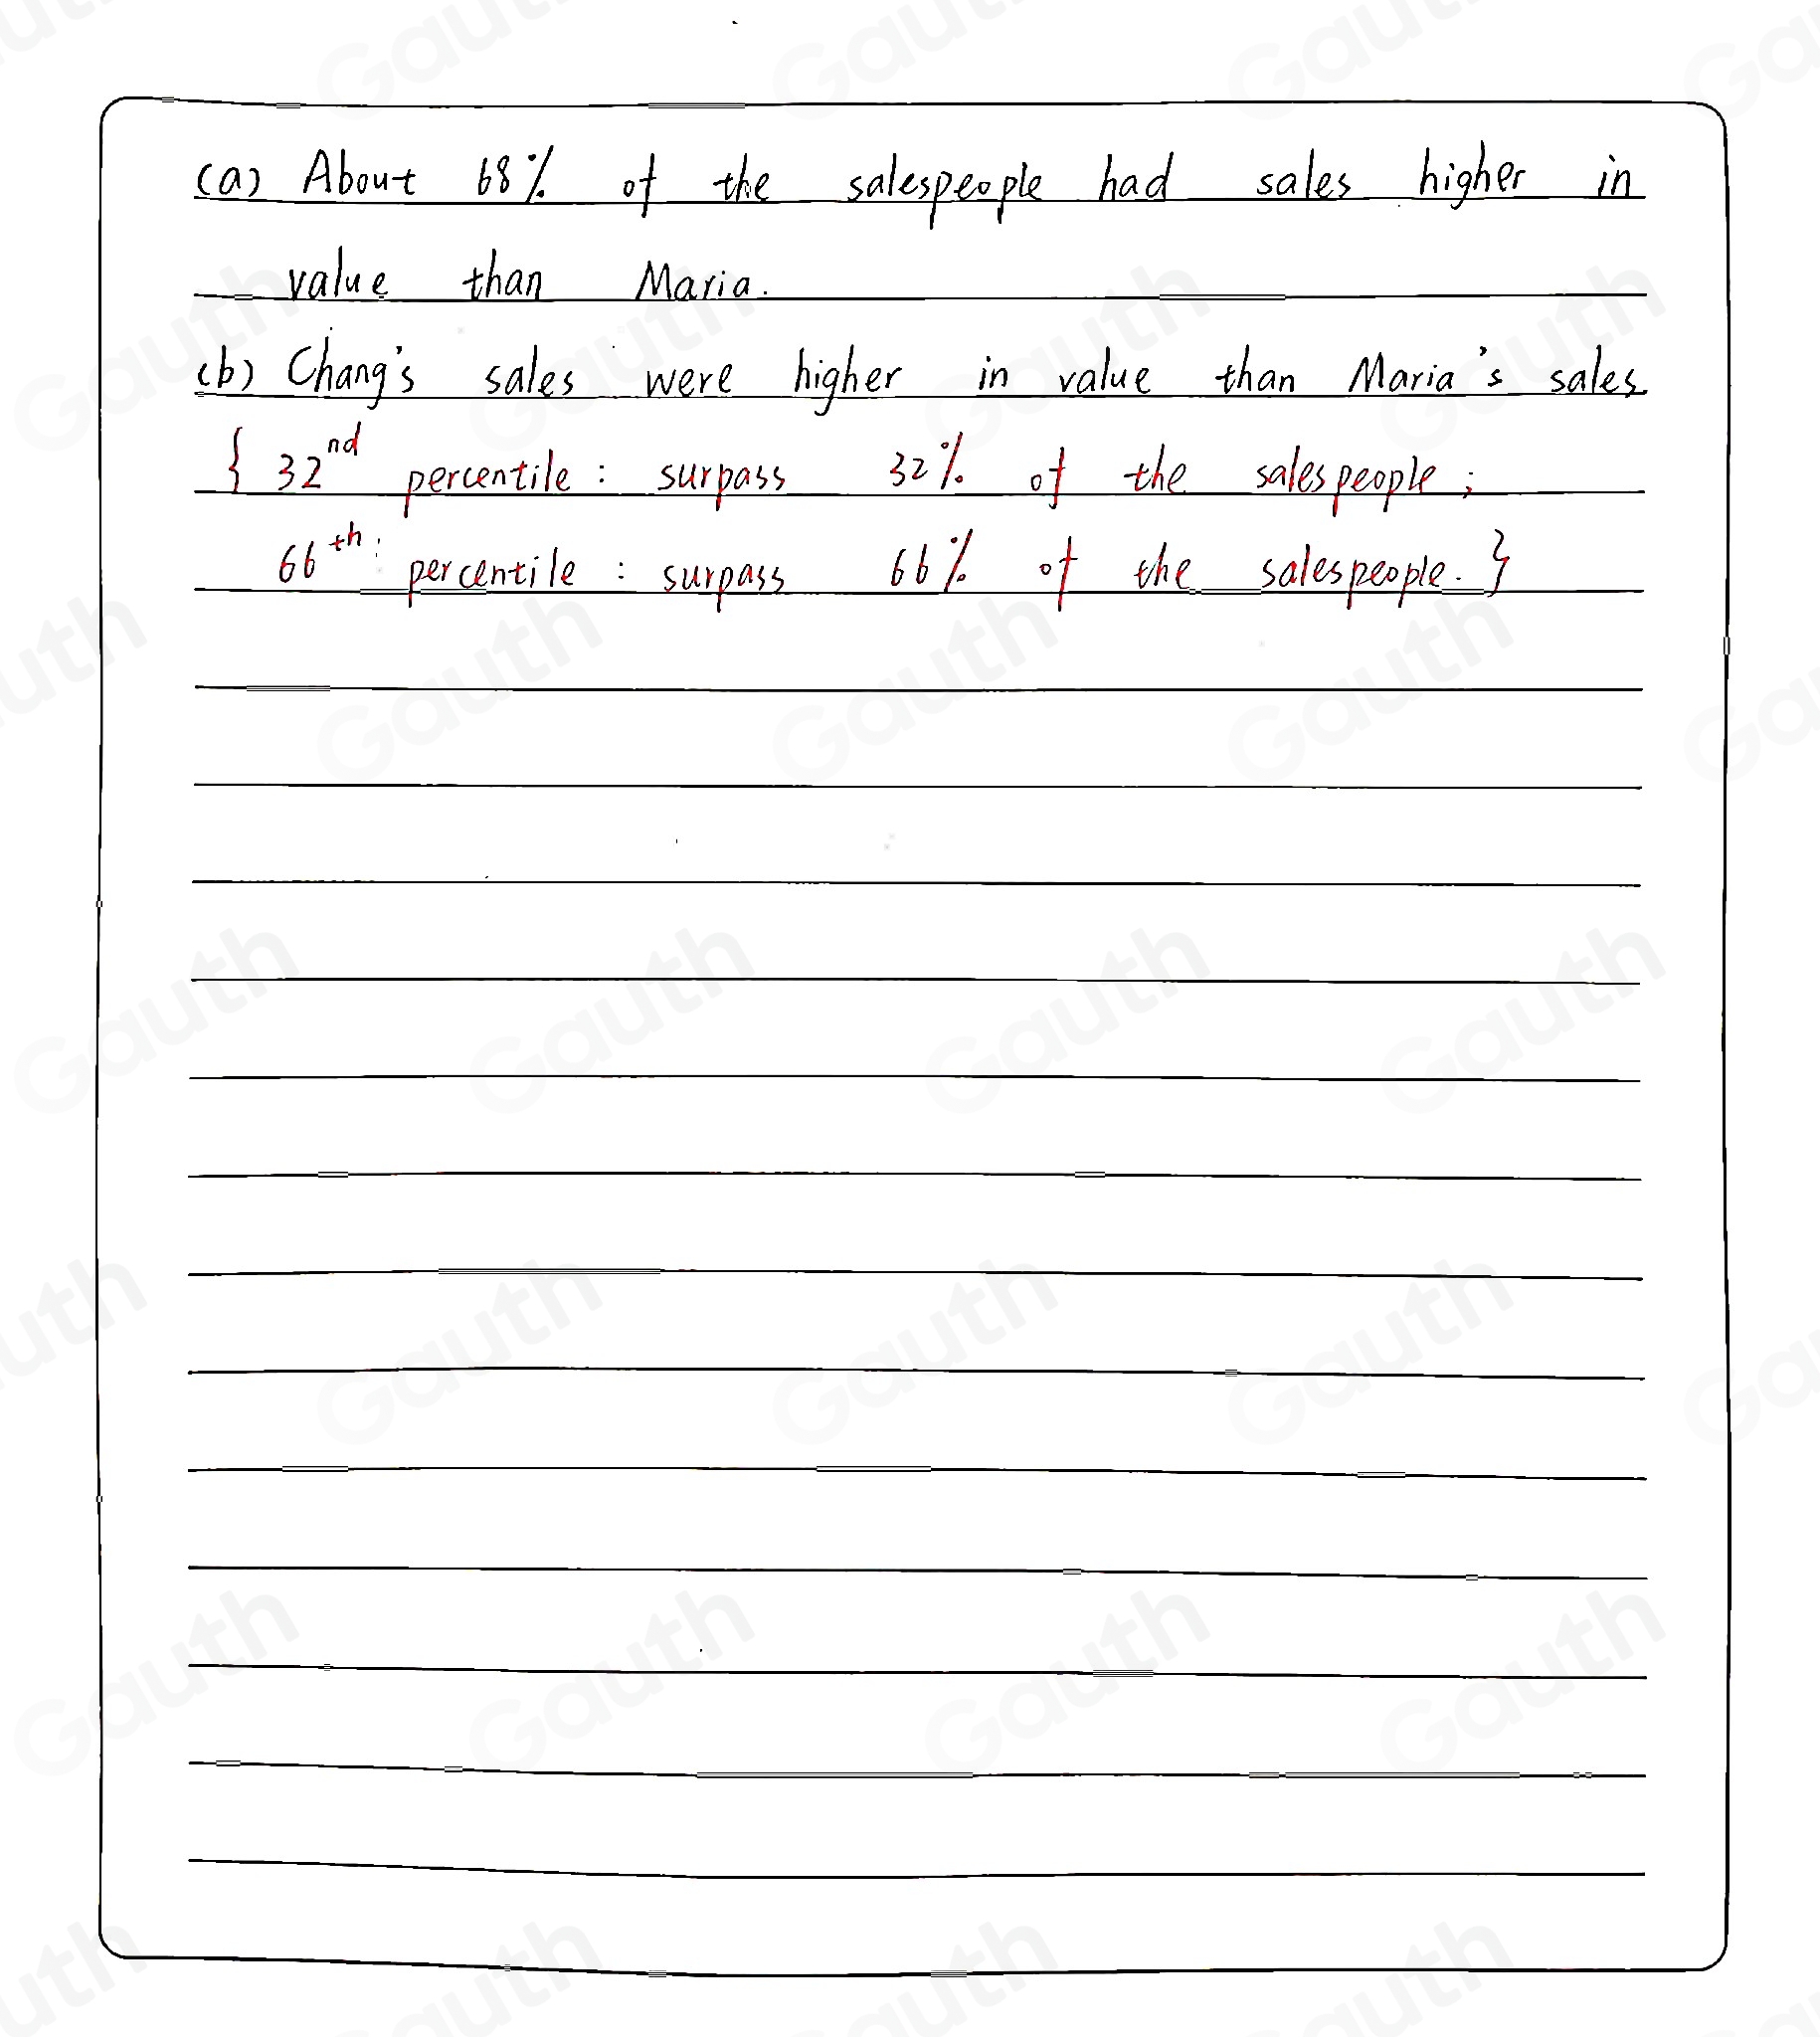 (a) About 68% of the salespeople had sales higher in
value than Maria.
(b) Chang's sales were higher in value than Maria's sales.
{ 32nd percentile: surpass 32% of the salespeople;
66th percentile: surpass 66% of the salespeople. }
Gauth